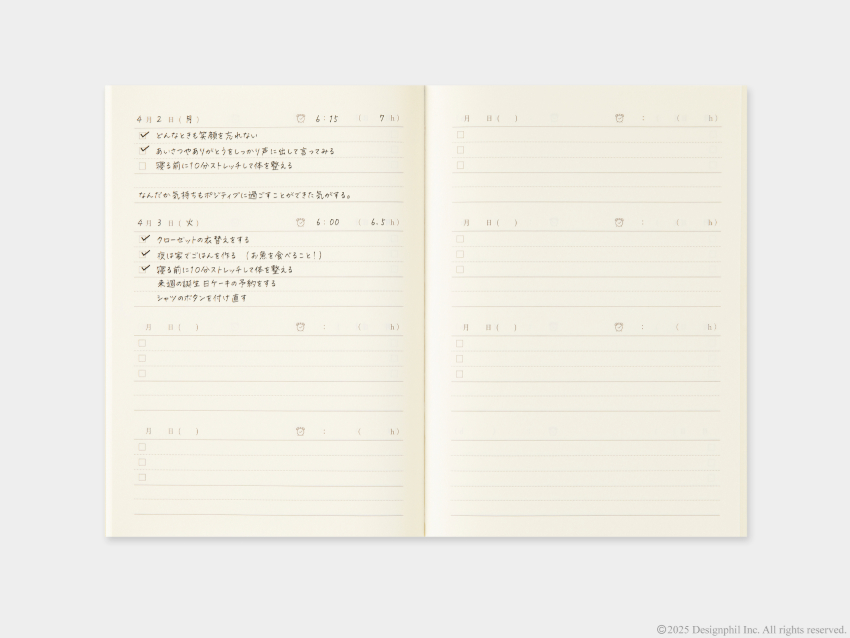 4月2日(月) 6:15 (7h)
どんなときも笑顔を忘れない
あいさつやありがとうをしっかり声に出して言ってみる
寝る前に10分ストレッチして体を整える
なんだか気持ちもポジティブに過ごすことができた気がする。
4月3日(火) 6:00 (6.5h)
クローゼットの衣替えをする
夜は家でごはんを作る (お魚を食べること!)
寝る前に10分ストレッチして体を整える
来週の誕生日ケーキの予約をする
シャツのボタンを付け直す
月 日( ) : ( h)
月 日( ) : ( h)
月 日( ) : ( h)
月 日( ) : ( h)
月 日( ) : ( h)
©2025 Designphil Inc. All rights reserved.